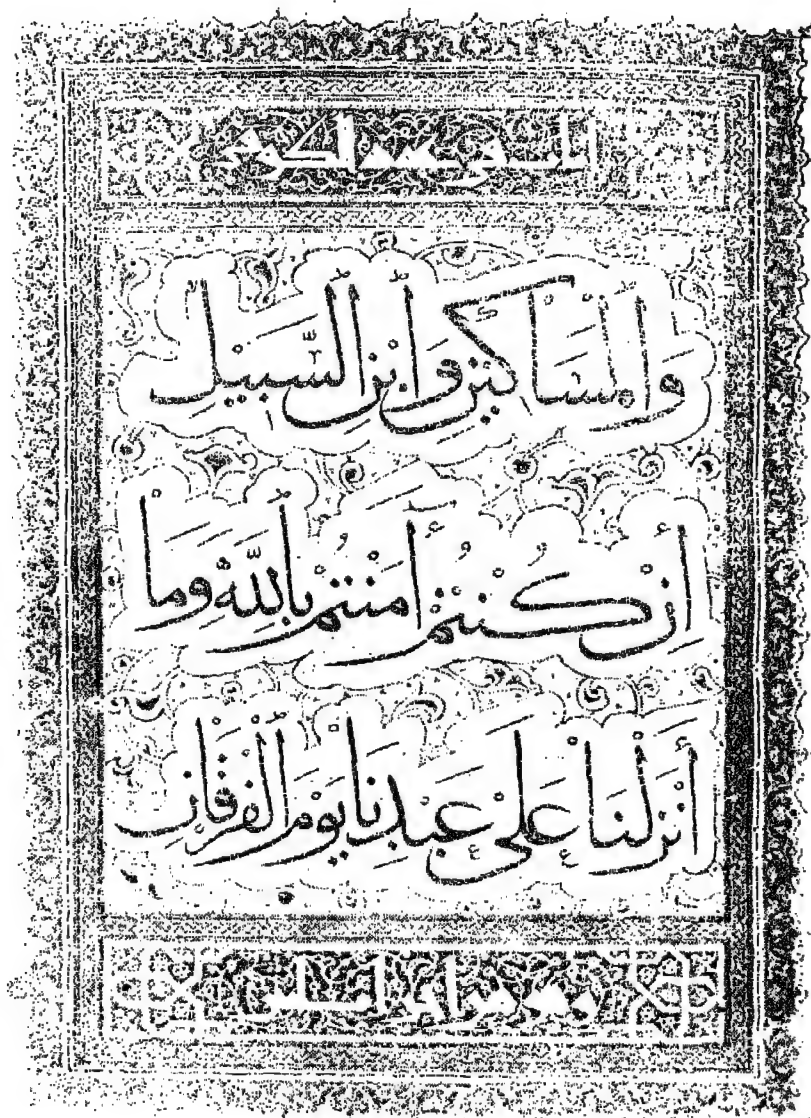 وَالْمَسَاكِينِ وَابْنِ السَّبِيلِ
إِنْ كُنْتُمْ آمَنْتُمْ بِاللَّهِ وَمَا
أَنْزَلْنَا عَلَىٰ عَبْدِنَا يَوْمَ الْفُرْقَانِ